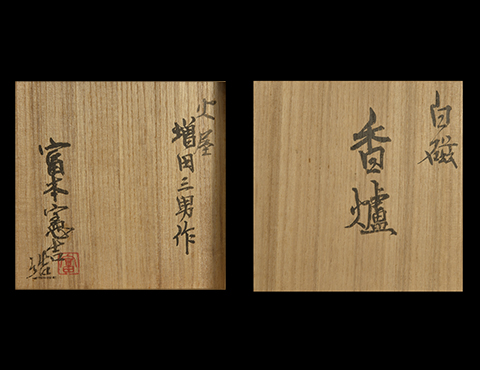 白磁
香爐
火屋
増田三男作
富本憲吉
造
富